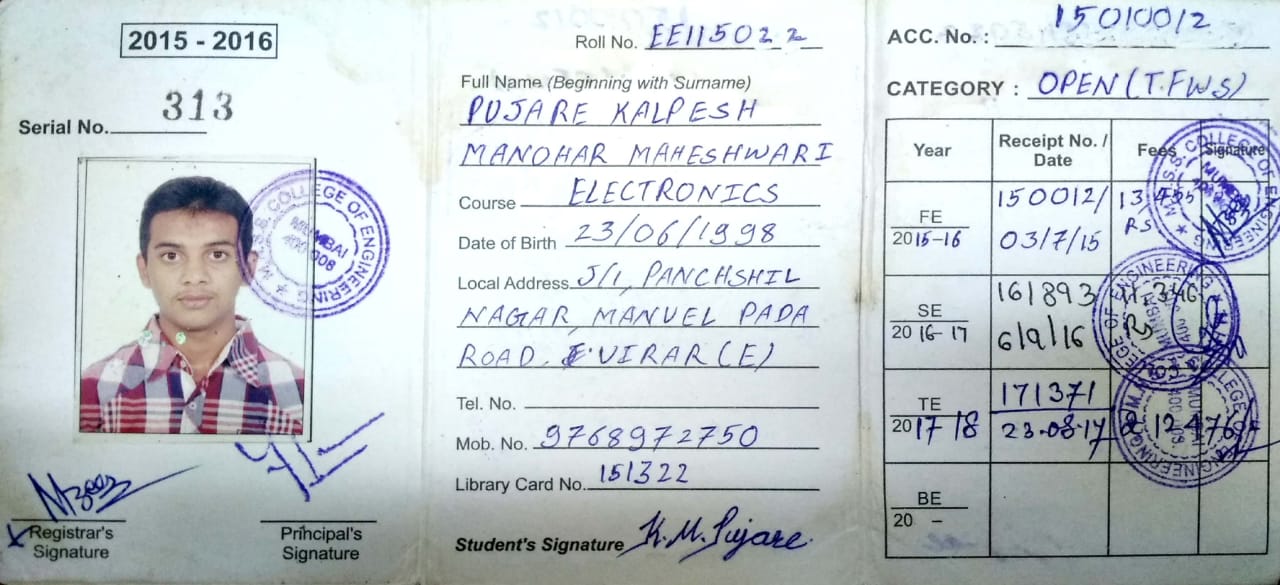 2015 - 2016
Serial No. 313
M.S.S. COLLEGE OF ENGINEERING
MUMBAI
400 008
Registrar's
Signature
Principal's
Signature
Roll No. EE115022
Full Name (Beginning with Surname)
PUJARE KALPESH
MANOHAR MAHESHWARI
Course ELECTRONICS
Date of Birth 23/06/1998
Local Address J/1, PANCHSHIL
NAGAR, MANUEL PADA
ROAD, VIRAR (E)
Tel. No.
Mob. No. 9768972750
Library Card No. 151322
Student's Signature K.M. Pujare
ACC. No. : 15010012
CATEGORY : OPEN (T.F.W.S)
Year Receipt No. / Date Fees Signature
FE 2015-16 150012/ 03/7/15 RS
SE 2016-17 161893 6/9/16
TE 2017 18 171371 23-08-17
BE
20 -